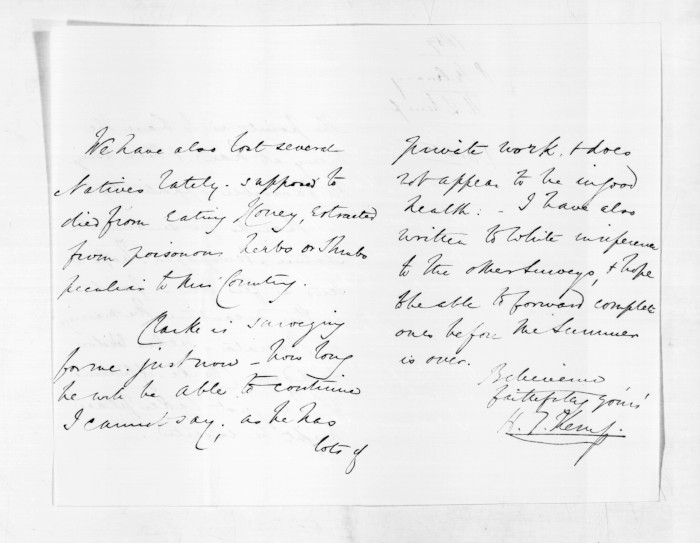 We have also lost several
Natives lately. supposed to
died from eating Honey, Extracted
from poisonous herbs or Shrubs
peculiar to this Country.
Clarke is surveying
for me. just now – how long
he will be able to continue
I cannot say; as he has
lots of
private work. & does
not appear to be in good
health: – I have also
written to White in reference
to the other Surveys, & hope
to be able to forward complete
ones before the Summer
is over.
Believe me,
faithfully yours
H. T. Kemp.